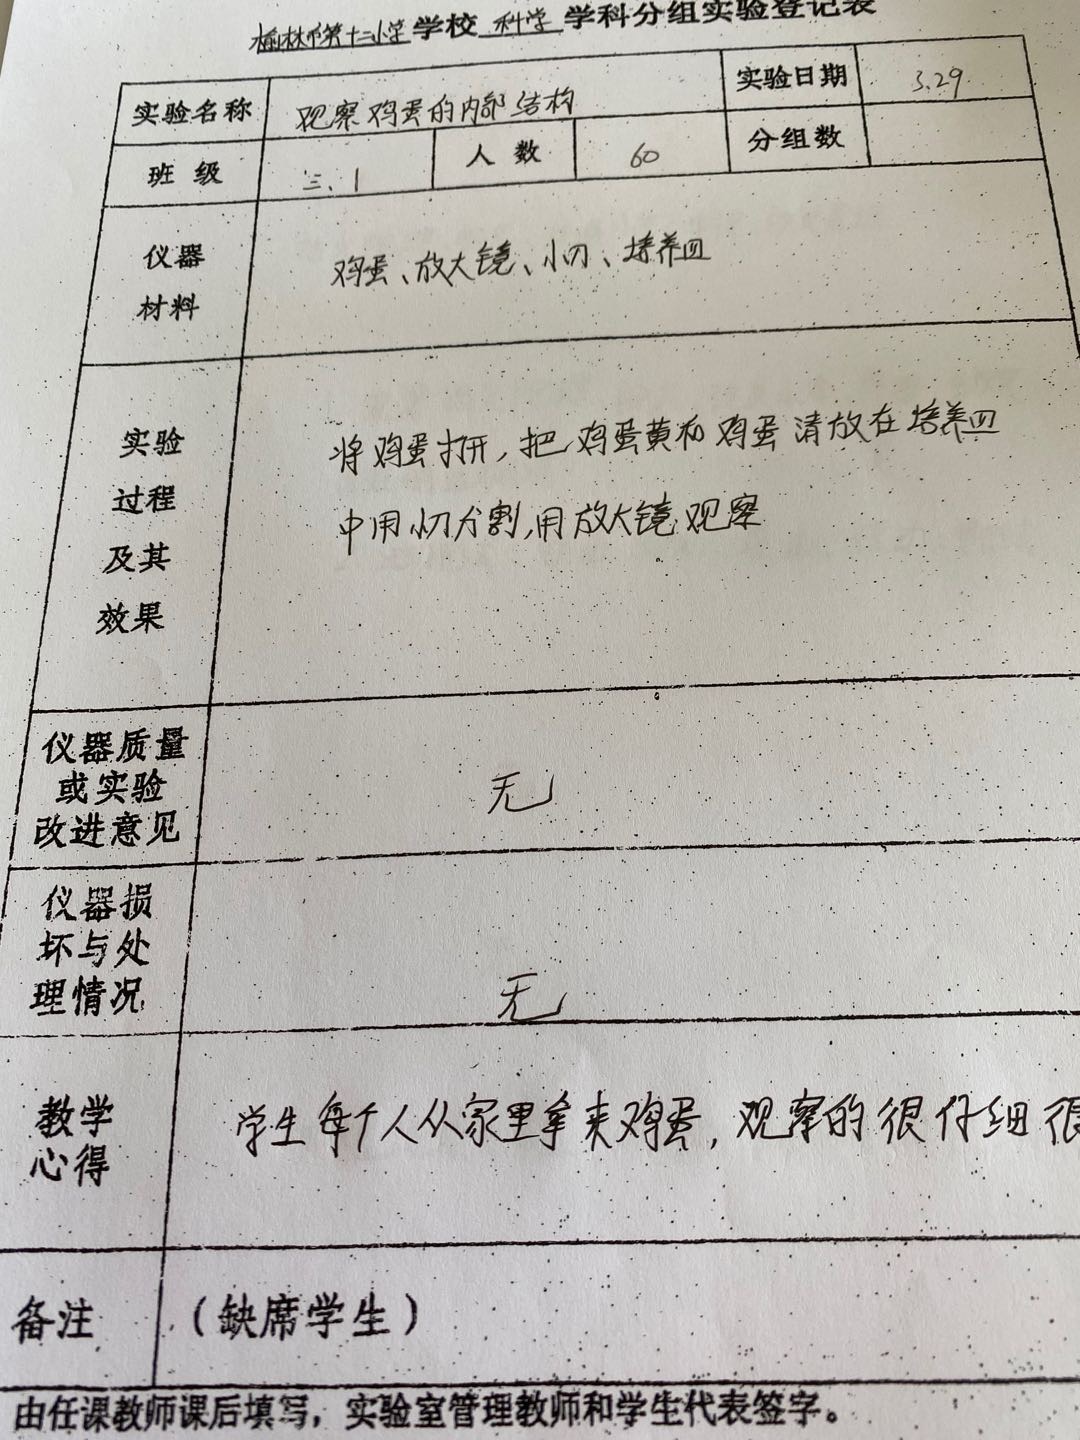 榆林市第十二小学学校 科学 学科分组实验登记表
实验名称 观察鸡蛋的内部结构 实验日期 3.29
班 级 三.1 人 数 60 分组数
仪器
材料
鸡蛋、放大镜、小刀、培养皿
实验
过程
及其
效果
将鸡蛋打开,把鸡蛋黄和鸡蛋清放在培养皿
中用小刀分割,用放大镜观察
仪器质量
或实验
改进意见
无
仪器损
坏与处
理情况
无
教学
心得
学生每个人从家里拿来鸡蛋,观察的很仔细很
备注 (缺席学生)
由任课教师课后填写，实验室管理教师和学生代表签字。